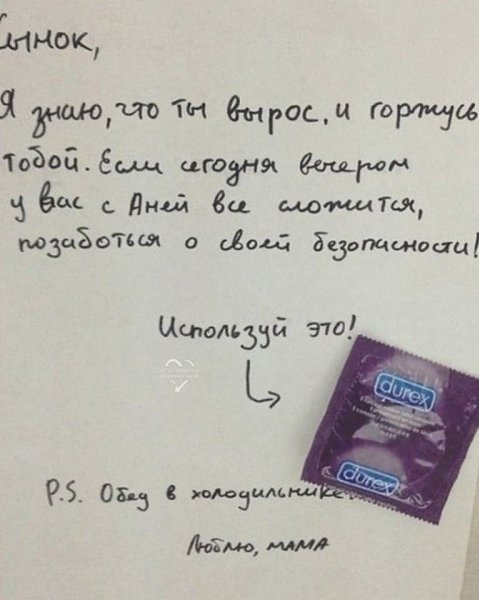 Сынок,
Я знаю, что ты вырос, и горжусь
тобой. Если сегодня вечером
у вас с Аней все сложится,
позаботься о своей безопасности!
Используй это!
durex
durex
P.S. Обед в холодильнике.
Люблю, мама